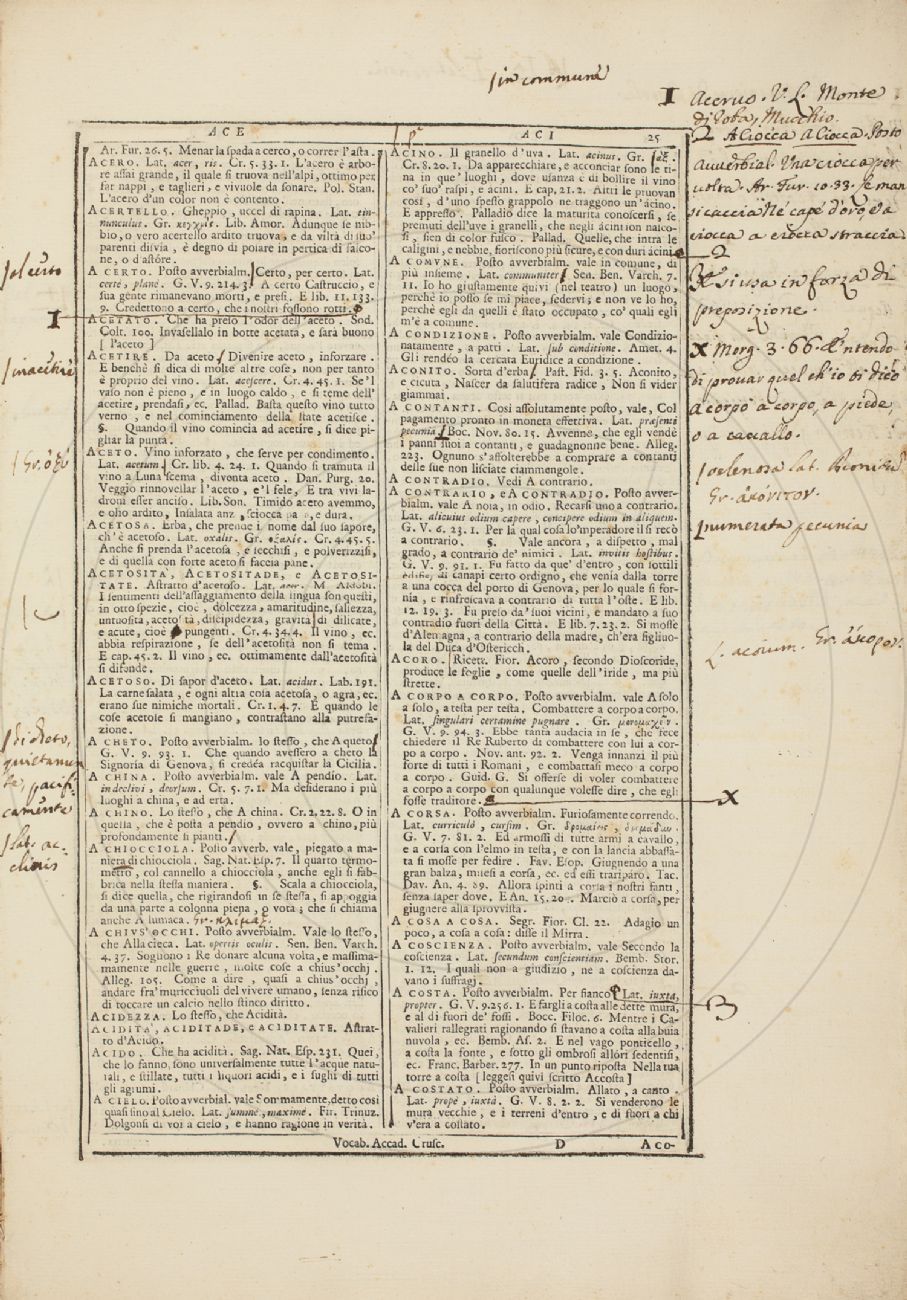 in commune
I Acervo. V. L. Monte
di roba, Mucchio.
2 A Ciocca A Ciocca. Posto
Avverbial. Una ciocca per
volta. Ar. Fur. 10. 33. Se man
si caccia Ne' capei d'oro, e a
ciocca a ciocca straccia
2
si usa in forza di
preposizione.
X Morg. 3. 66. E intendo
di provar quel ch'io ti dico
A corpo a corpo, a piede,
o a cavallo.
numerata pecunia
L. acorum. Gr. ἄκορον.
X
I
di cheto,
quietamen
te, pacifi-
camente
lat. ac-
clivis
ACE
ACI 25
Ar. Fur. 26. 5. Menar la spada a cerco, o correr l'asta.
ACERO. Lat. acer, ris. Cr. 5. 33. 1. L'acero è arbo-
re assai grande, il quale si truova nell'alpi, ottimo per
far nappi, e taglieri, e vivuole da sonare. Pol. Stan.
L'acero d'un color non è contento.
ACERTELLO. Gheppio, uccel di rapina. Lat. tin-
nunculus. Gr. κεγχρίς. Lib. Amor. Adunque se nib-
bio, o vero acertello ardito truova, e da viltà di suo'
parenti disvia, è degno di posare in pertica di falco-
ne, o d'astóre.
A CERTO. Posto avverbialm. Certo, per certo. Lat.
certè, planè. G. V. 9. 214. 3. A certo Castruccio, e
sua gente rimanevano morti, e presi. E lib. 11. 133.
9. Credettono a certo, che i nostri fossono rotti.
ACETATO. Che ha preso l'odor dell'aceto. Sod.
Colt. 100. Invasellalo in botte acetata, e sarà buono
[l'aceto]
ACETIRE. Da aceto. Divenire aceto, inforzare.
E benchè si dica di molte altre cose, non per tanto
è proprio del vino. Lat. acescere. Cr. 4. 45. 1. Se'l
vaso non è pieno, e in luogo caldo, e si teme dell'
acetire, prendasi, ec. Pallad. Basta questo vino tutto
verno, e nel cominciamento della state acetisce.
§. Quando il vino comincia ad acetire, si dice pi-
gliar la punta.
ACETO. Vino inforzato, che serve per condimento.
Lat. acetum. Cr. lib. 4. 24. 1. Quando si tramuta il
vino a Luna scema, diventa aceto. Dan. Purg. 20.
Veggio rinnovellar l'aceto, e'l fele, E tra vivi la-
droni esser anciso. Lib. Son. Timido aceto avemmo,
e olio ardito, Insalata anz, sciocca
ACETOSA. Erba, che prende il nome dal suo sapore,
ch'è acetoso. Lat. oxalis. Gr. ὀξαλίς. Cr. 4. 45. 5.
Anche si prenda l'acetosa, e secchisi, e polverizzisi,
e di quella con forte aceto si faccia pane.
ACETOSITÀ, ACETOSITADE, e ACETOSI-
TATE. Astratto d'acetoso. Lat. acor. M. Aldobr.
I sentimenti dell'assaggiamento della lingua son questi,
in otto spezie, cioè, dolcezza, amaritudine, salsezza,
untuosità, acetosità, discipidezza, gravità di dilicate,
e acute, cioè pungenti. Cr. 4. 34. 4. Il vino, ec.
abbia respirazione, se dell'acetosità non si tema.
E cap. 45. 2. Il vino, ec. ottimamente dall'acetosità
si difonde.
ACETOSO. Di sapor d'aceto. Lat. acidus. Lab. 191.
La carne salata, e ogni altra cosa acetosa, o agra, ec.
erano sue nimiche mortali. Cr. 1. 4. 7. E quando le
cose acetose si mangiano, contrastano alla putrefa-
zione.
A CHETO. Posto avverbialm. lo stesso, che A queto
G. V. 9. 93. 1. Che quando avessero a cheto la
Signoria di Genova, si credéa racquistar la Cicilia.
A CHINA. Posto avverbialm. vale A pendío. Lat.
in declivi, deorsum. Cr. 5. 7. 1. Ma desiderano i più
luoghi a china, e ad erta.
A CHINO. Lo stesso, che A china. Cr. 2. 22. 8. O in
quella, che è posta a pendío, ovvero a chino, più
profondamente si pianti.
A CHIOCCIOLA. Posto avverb. vale, piegato a ma-
niera di chiocciola. Sag. Nat. Esp. 7. Il quarto termo-
metro, col cannello a chiocciola, anche egli si fab-
brica nella stessa maniera. §. Scala a chiocciola,
si dice quella, che rigirandosi in se stessa, si appoggia
da una parte a colonna piena, o vota; che si chiama
anche A lumaca.
A CHIUS' OCCHI. Posto avverbialm. Vale lo stesso,
che Alla cieca. Lat. opertis oculis. Sen. Ben. Varch.
4. 37. Sogliono i Re donare alcuna volta, e massima-
mamente nelle guerre, molte cose a chius'occhj.
Alleg. 105. Come a dire, quasi a chius'occhj,
andare fra' muricciuoli del vivere umano, senza risico
di toccare un calcio nello stinco diritto.
ACIDEZZA. Lo stesso, che Acidità.
ACIDITA', ACIDITADE, e ACIDITATE. Astrat-
to d'Acido.
ACIDO. Che ha acidità. Sag. Nat. Esp. 231. Quei,
che lo fanno, sono universalmente tutte l'acque natu-
rali, e stillate, tutti i liquori acidi, e i sughi di tutti
gli agrumi.
A CIELO. Posto avverbial. vale Sommamente, detto così
quasi sino al Cielo. Lat. summè, maximè. Fir. Trinuz.
Dolgonsi di voi a cielo, e hanno ragione in verità.
ACINO. Il granello d'uva. Lat. acinus. Gr.
Cr. 8. 20. 1. Da apparecchiare, e acconciar sono le ti-
na in que' luoghi, dove usanza è di bollire il vino
co' suo' raspi, e acini. E cap. 21. 2. Altri le pruovan
così, d'uno spesso grappolo ne traggono un'ácino.
E appresso. Palladio dice la maturità conoscersi, se
premuti dell'uve i granelli, che negli ácini son nasco-
si, sien di color fusco. Pallad. Quelle, che intra le
caligini, e nebbie, fioriscono più sicure, e con duri ácini
A COMUNE. Posto avverbialm. vale in comune, di
più insieme. Lat. communiter. Sen. Ben. Varch. 7.
11. Io ho giustamente quivi (nel teatro) un luogo,
perchè io posso se mi piace, sedervi; e non ve lo ho,
perchè egli da quelli è stato occupato, co' quali egli
m'è a comune.
A CONDIZIONE. Posto avverbialm. vale Condizio-
natamente, a patti. Lat. sub conditione. Amet. 4.
Gli rendéo la cercata Euridice a condizione.
ACONITO. Sorta d'erba. Past. Fid. 3. 5. Aconito,
e cicuta, Nascer da salutifera radice, Non si vider
giammai.
A CONTANTI. Così assolutamente posto, vale, Col
pagamento pronto in moneta effettiva. Lat. præsenti
pecunia. Boc. Nov. 80. 15. Avvenne, che egli vendè
i panni suoi a contanti, e guadagnonne bene. Alleg.
223. Ognuno s'affolterebbe a comprare a contanti
delle sue non lisciate ciammongole.
A CONTRADIO. Vedi A contrario.
A CONTRARIO, e A CONTRADIO. Posto avver-
bialm. vale A noia, in odio. Recarsi uno a contrario.
Lat. alicuius odium capere, concipere odium in aliquem.
G. V. 6. 23. 1. Per la qual cosa lo'mperadore il si recò
a contrario. §. Vale ancora, a dispetto, mal
grado, a contrario de' nimici. Lat. invitis hostibus.
G. V. 9. 91. 1. Fu fatto da que' d'entro, con sottili
edificj di canapi certo ordigno, che venía dalla torre
a una cocca del porto di Genova, per lo quale si for-
nía, e rinfrescava a contrario di tutta l'oste. E lib.
12. 19. 3. Fu preso da' suoi vicini, e mandato a suo
contradio fuori della Città. E lib. 7. 23. 2. Si mosse
d'Alemagna, a contrario della madre, ch'era figliuo-
la del Duca d'Ostericch.
ACORO. Ricett. Fior. Acoro, secondo Dioscoride,
produce le foglie, come quelle dell'iride, ma più
strette.
A CORPO A CORPO. Posto avverbialm. vale A solo
a solo, a testa per testa. Combattere a corpo a corpo.
Lat. singulari certamine pugnare. Gr. μονομαχεῖν.
G. V. 9. 94. 3. Ebbe tanta audacia in se, che fece
chiedere il Re Ruberto di combattere con lui a cor-
po a corpo. Nov. ant. 92. 2. Venga innanzi il più
forte di tutti i Romani, e combattasi meco a corpo
a corpo. Guid. G. Si offerse di voler combattere
a corpo a corpo con qualunque volesse dire, che egli
fosse traditore.
A CORSA. Posto avverbialm. Furiosamente correndo.
Lat. curriculò, cursim. Gr.
G. V. 7. 81. 2. Ed armossi di tutte armi a cavallo,
e a corsa con l'elmo in testa, e con la lancia abbassa-
ta si mosse per fedire. Fav. Esop. Giugnendo a una
gran balza, misesi a corsa, ec. ed essi traripáro. Tac.
Dav. An. 4. 89. Allora spinti a corsa i nostri fanti,
senza saper dove, E An. 15. 20. Marciò a corsa, per
giugnere alla sprovvista.
A COSA A COSA. Segr. Fior. Cl. 22. Adagio un
poco, a cosa a cosa: disse il Mirra.
A COSCIENZA. Posto avverbialm. vale Secondo la
coscienza. Lat. secundum conscientiam. Bemb. Stor.
1. 12. I quali non a giudizio, nè a coscienza da-
vano i suffragj.
A COSTA. Posto avverbialm. Per fianco. Lat. iuxta,
propter. G. V. 9. 256. 1. E fargli a costa alle dette mura,
e al di fuori de' fossi. Bocc. Filoc. 6. Mentre i Ca-
valieri rallegrati ragionando si stavano a costa alla buia
nuvola, ec. Bemb. As. 2. E nel vago ponticello,
a costa la fonte, e sotto gli ombrosi allóri sedentisi,
ec. Franc. Barber. 277. In un punto riposta Nella tua
torre a costa [leggesi quivi scritto Accosta]
A COSTATO. Posto avverbialm. Allato, a canto.
Lat. propè, iuxtà. G. V. 8. 2. 2. Si venderono le
mura vecchie, e i terreni d'entro, e di fuori a chi
v'era a costato.
Vocab. Accad. Crusc. D Aco-